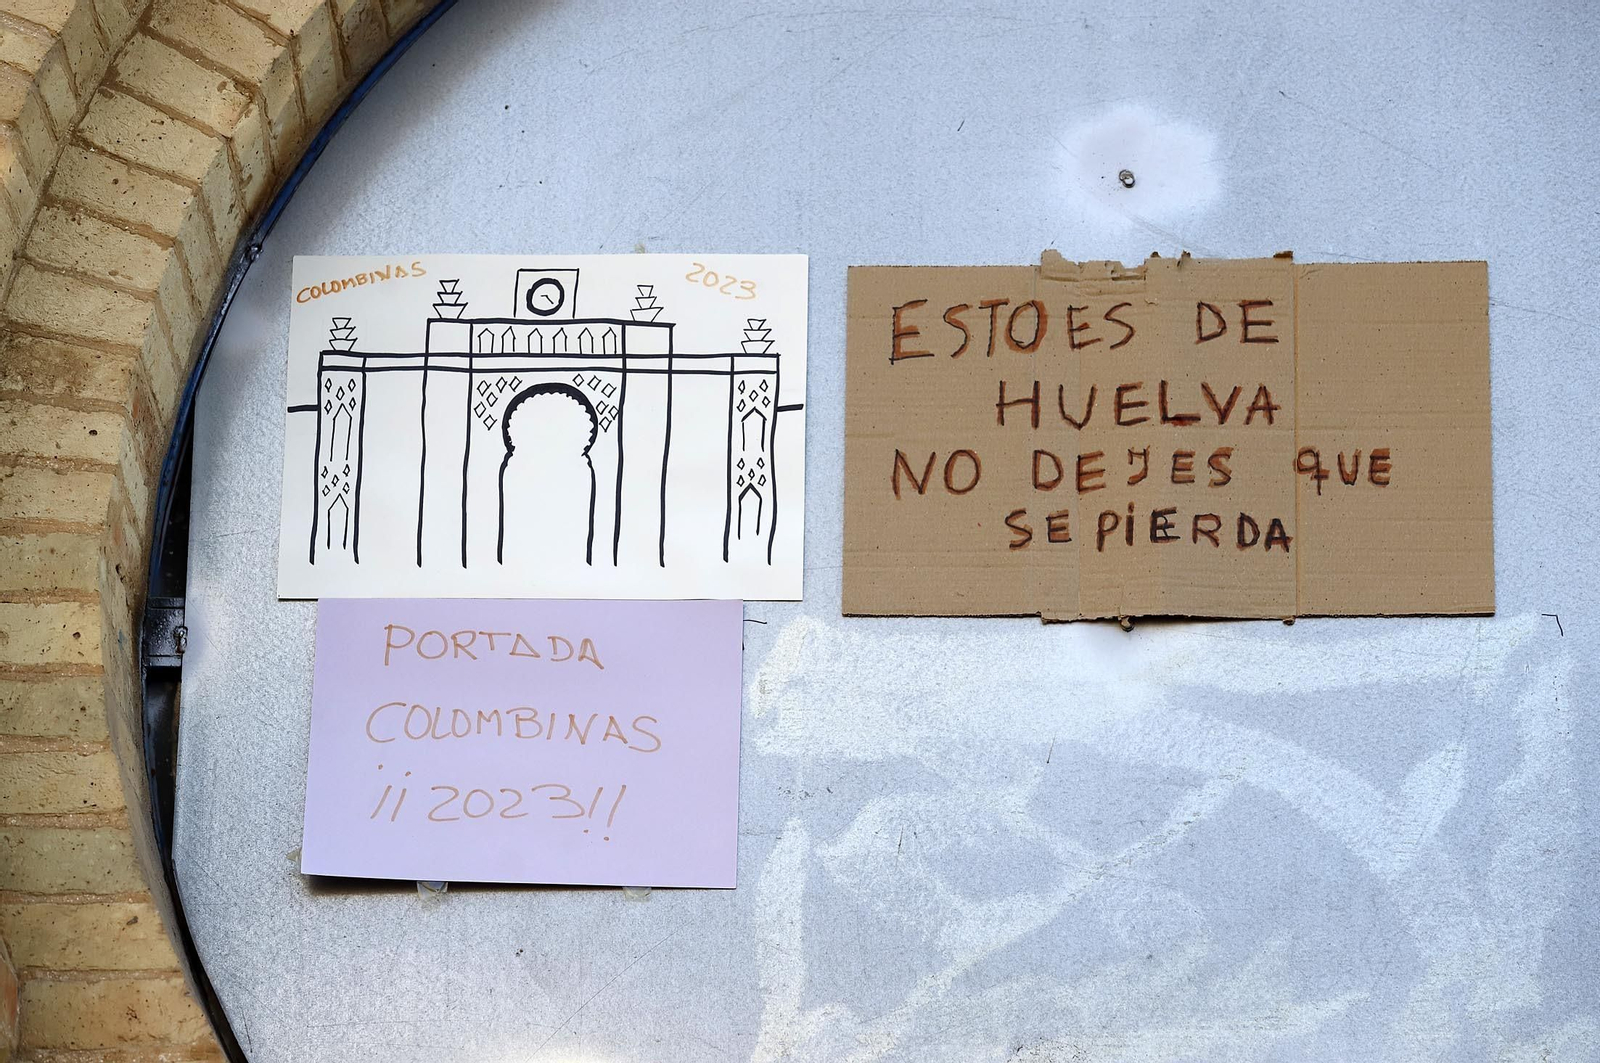 COLOMBINAS 2023
PORTADA
COLOMBINAS
¡¡2023!!
ESTO ES DE
HUELVA
NO DEJES QUE
SE PIERDA